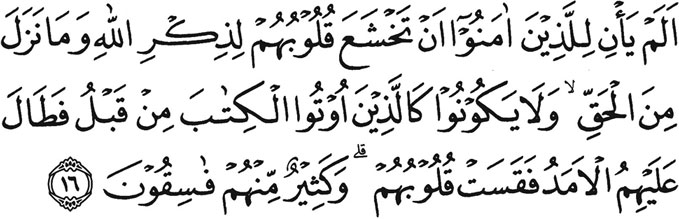 اَلَمْ يَأْنِ لِلَّذِيْنَ اٰمَنُوْٓا اَنْ تَخْشَعَ قُلُوْبُهُمْ لِذِكْرِ اللّٰهِ وَمَا نَزَلَ
مِنَ الْحَقِّ ۙ وَلَا يَكُوْنُوْا كَالَّذِيْنَ اُوْتُوا الْكِتٰبَ مِنْ قَبْلُ فَطَالَ
عَلَيْهِمُ الْاَمَدُ فَقَسَتْ قُلُوْبُهُمْ ۗ وَكَثِيْرٌ مِّنْهُمْ فٰسِقُوْنَ ١٦